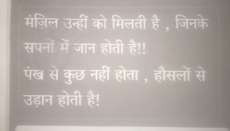 मंज़िल उन्हीं को मिलती है , जिनके
सपनों में जान होती है!!
पंख से कुछ नहीं होता , हौसलों से
उड़ान होती है!